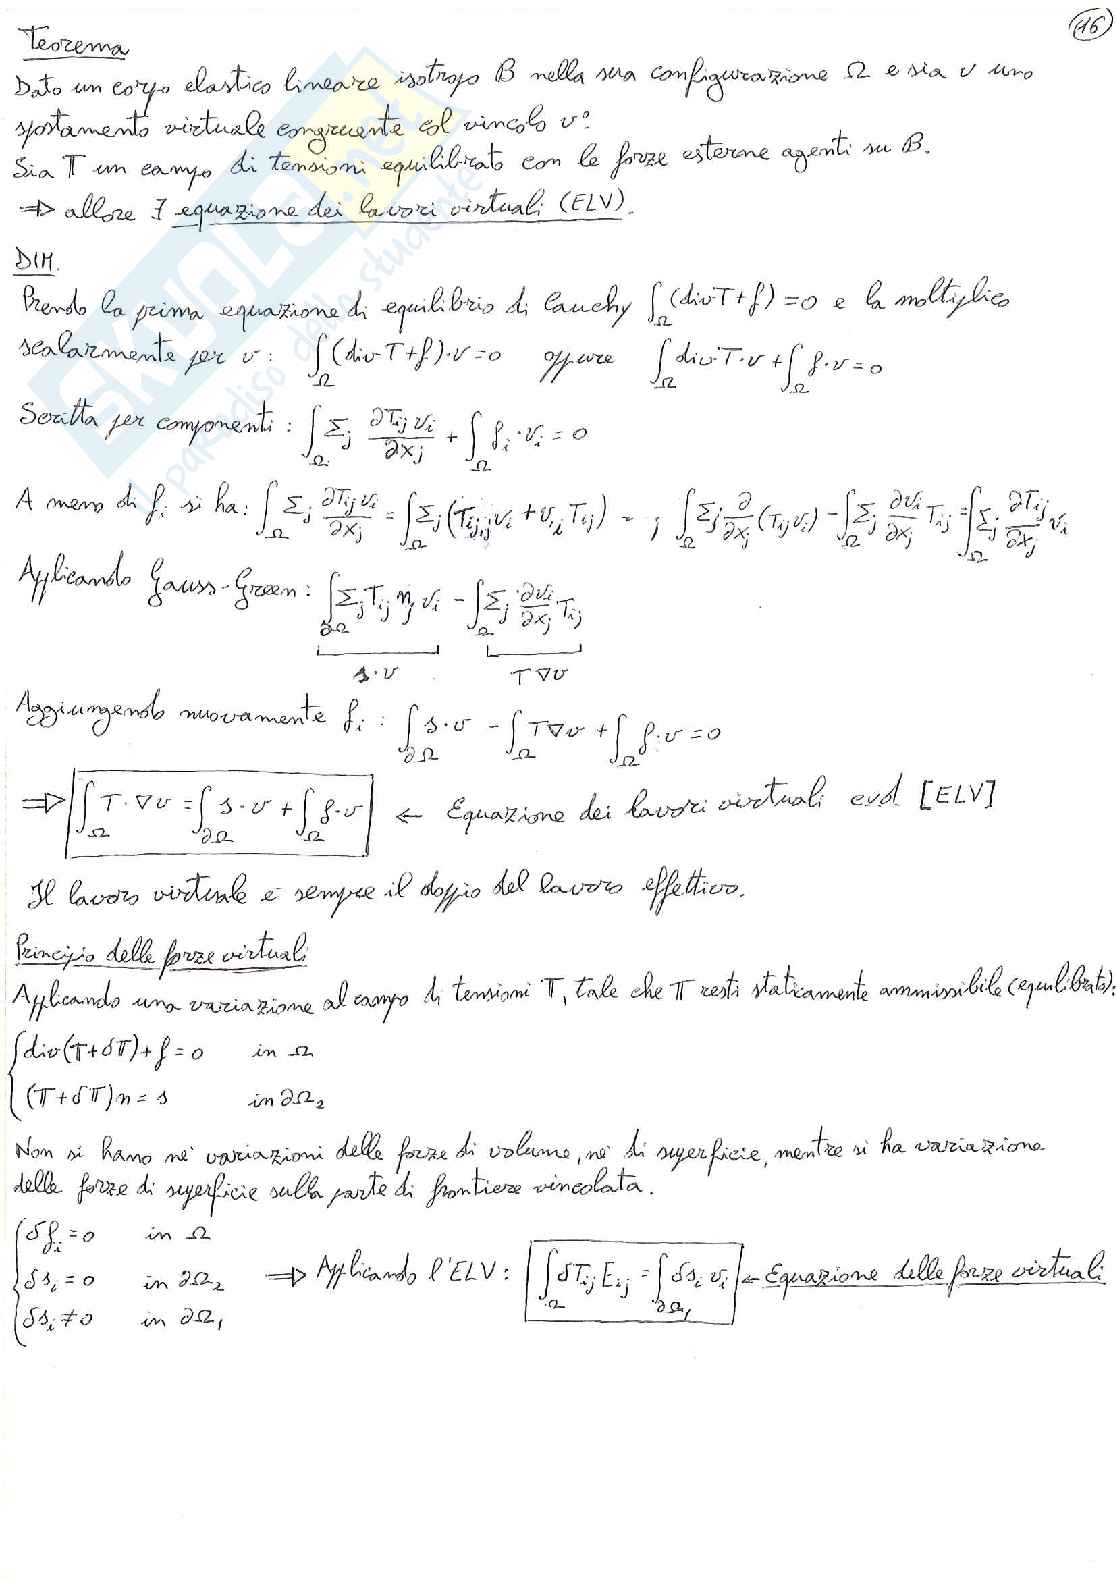 16
Teorema
Dato un corpo elastico lineare isotropo B nella sua configurazione Ω e sia v uno
spostamento virtuale congruente col vincolo v°.
Sia T un campo di tensioni equilibrato con le forze esterne agenti su B.
⇒ allora ∃ equazione dei lavori virtuali (ELV).
DIM.
Prendo la prima equazione di equilibrio di Cauchy ∫_Ω (divT+f) = 0 e la moltiplico
scalarmente per v: ∫_Ω (div T+f)·v=0 oppure ∫_Ω div T·v + ∫_Ω f·v=0
Scritta per componenti: ∫_Ω Σ_j ∂T_ij v_i/∂x_j + ∫_Ω f_i·v_i = 0
A meno di f_i si ha: ∫_Ω Σ_j ∂T_ij v_i/∂x_j = ∫_Ω Σ_j (T_ij,j v_i + v_i,j T_ij) = ; ∫_Ω Σ_j ∂/∂x_j (T_ij v_i) - ∫_Ω Σ_j ∂v_i/∂x_j T_ij = ∫_Ω Σ_j ∂T_ij/∂x_j v_i
Applicando Gauss-Green: ∫_∂Ω Σ_j T_ij n_j v_i - ∫_Ω Σ_j ∂v_i/∂x_j T_ij
s·v T∇v
Aggiungendo nuovamente f_i: ∫_∂Ω s·v - ∫_Ω T∇v + ∫_Ω f·v=0
⇒ ∫_Ω T·∇v = ∫_∂Ω s·v + ∫_Ω f·v ← Equazione dei lavori virtuali cvd [ELV]
Il lavoro virtuale è sempre il doppio del lavoro effettivo.
Principio delle forze virtuali
Applicando una variazione al campo di tensioni T, tale che T resti staticamente ammissibile (equilibrato):
div(T+δT)+f=0 in Ω
(T+δT)n=s in ∂Ω₂
Non si hano né variazioni delle forze di volume, né di superficie, mentre si ha variazione
delle forze di superficie sulla parte di frontiera vincolata.
δf_i=0 in Ω
δs_i=0 in ∂Ω₂ ⇒ Applicando l'ELV: ∫_Ω δT_ij E_ij = ∫_∂Ω₁ δs_i v_i ← Equazione delle forze virtuali
δs_i≠0 in ∂Ω₁
SKUOLA.net
il paradiso dello studente